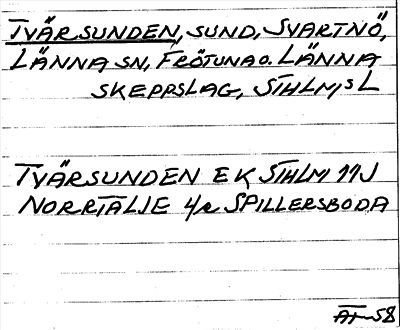 TVÄRSUNDEN, SUND, SVARTNÖ,
LÄNNA SN, FRÖTUNA O. LÄNNA
SKEPPSLAG, STHLMS L
TVÄRSUNDEN EK STHLM 11J
NORRTÄLJE 4/ SPILLERSBODA
58